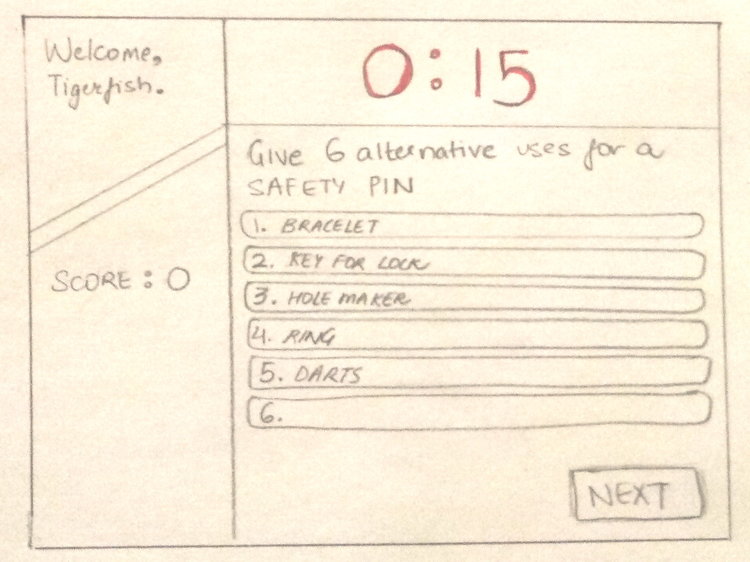 Welcome,
Tigerfish.
0:15
Give 6 alternative uses for a
SAFETY PIN
1. BRACELET
2. KEY FOR LOCK
3. HOLE MAKER
4. RING
5. DARTS
6.
SCORE : 0
NEXT